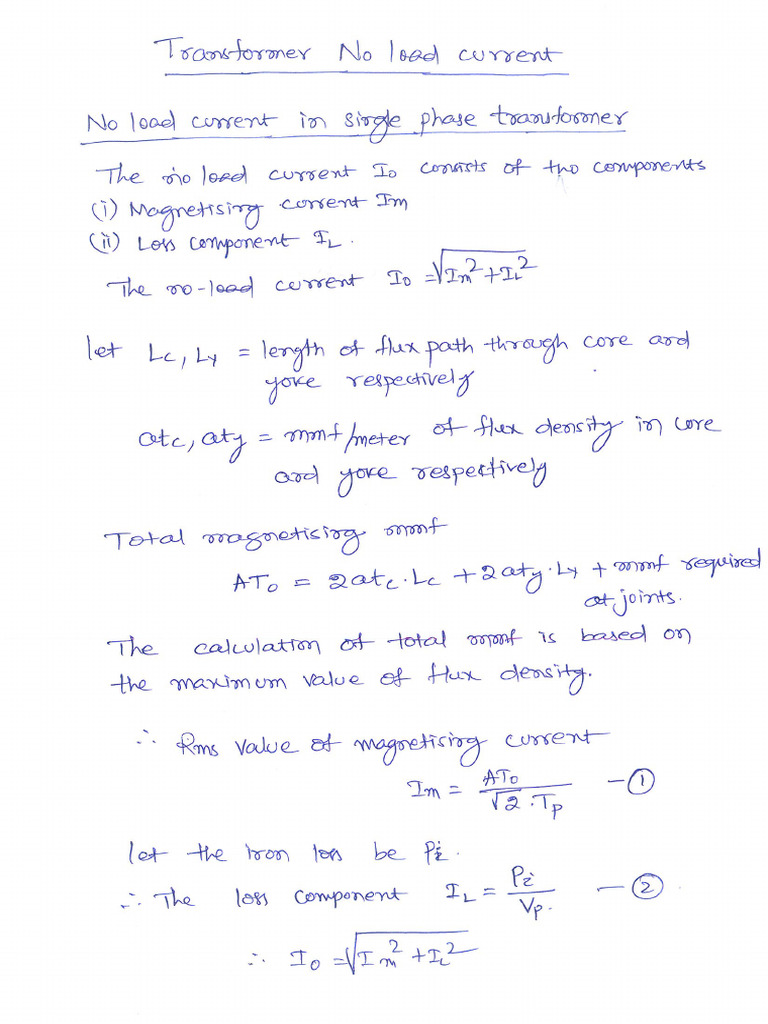 Transformer No load current
No load current in single phase transformer
The no load current I₀ consists of two components
(i) Magnetising current Im
(ii) Loss component I_L.
The no-load current I₀ = √(Im² + I_L²)
let Lc, Ly = length of flux path through core and
yoke respectively
atc, aty = mmf/meter of flux density in core
and yoke respectively
Total magnetising mmf
AT₀ = 2atc·Lc + 2aty·Ly + mmf required
at joints.
The calculation of total mmf is based on
the maximum value of flux density.
∴ Rms value of magnetising current
Im = AT₀ / (√2·Tp) — ①
let the iron loss be Pi.
∴ The loss component I_L = Pi / Vp. — ②
∴ I₀ = √(Im² + I_L²)